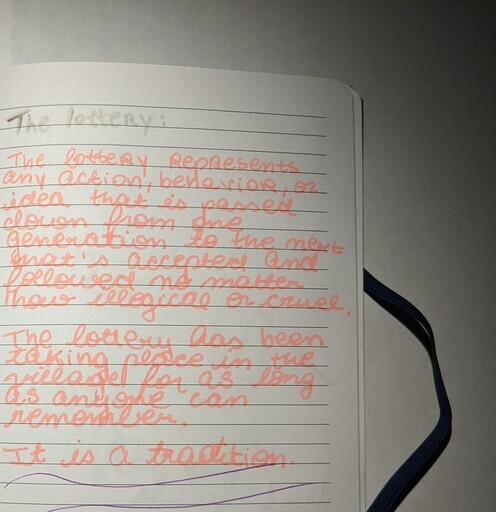 The lottery:
The lottery represents
any action, behavior, or
idea that is passed
down from one
generation to the next
that's accepted and
followed no matter
how illogical or cruel.
The lottery has been
taking place in the
village for as long
as anyone can
remember.
It is a tradition.